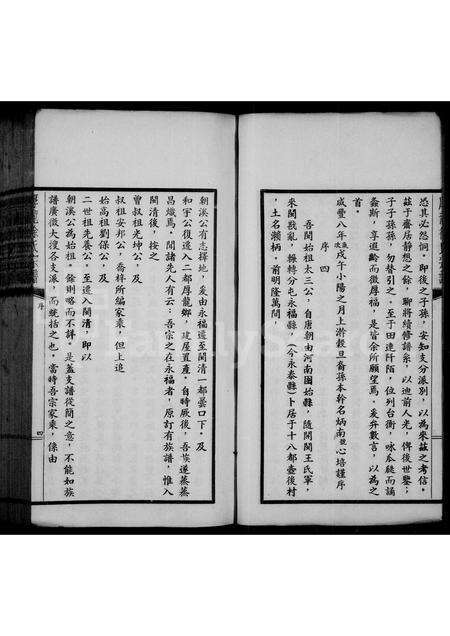 恐其必然恫。即後之子孫，安知支分派別，以為來茲之考信，
茲于齋居靜想之餘，聊將續修譜系，以迪前人光，俾後世鑒，
子子孫孫，勿替引之。至于田連阡陌，位列台衡，咏瓜瓞而誦
螽斯，享遐齡而徵厚福，是皆余所願望焉，爰弁數言，以為之
首。
咸豐八年歲次戊午小陽之月上澣穀旦裔孫本幹名炳南心培謹序
序 四
吾閩始祖太三公，自唐朝由河南固始縣，隨閩王氏軍，
來閩戡亂，輾轉分屯永福縣（今永泰縣）卜居于十八都壺後村
，土名瀨柄，前明隆萬間，
朝溪公有志擇地，爰由永福遷至閩清一都曇口下，及
和宇公復遷入二都厚龍鄉，建屋置產。自時厥後，吾族遂蒸蒸
昌熾焉，聞諸先人有云：吾宗之在永福者，原訂有族譜，惟入
閩清後，按之
曾叔祖光坤公，及
叔祖安邦公，喬梓所編家乘，但上追
始高祖劉保公，及
二世祖老養公。至遷入閩清，即以
朝溪公為始祖。餘則略而不詳。是蓋支譜從簡之意，不能如族
譜廣徵大搜各支派，而統括之也。當時吾宗家乘，係由
序
四